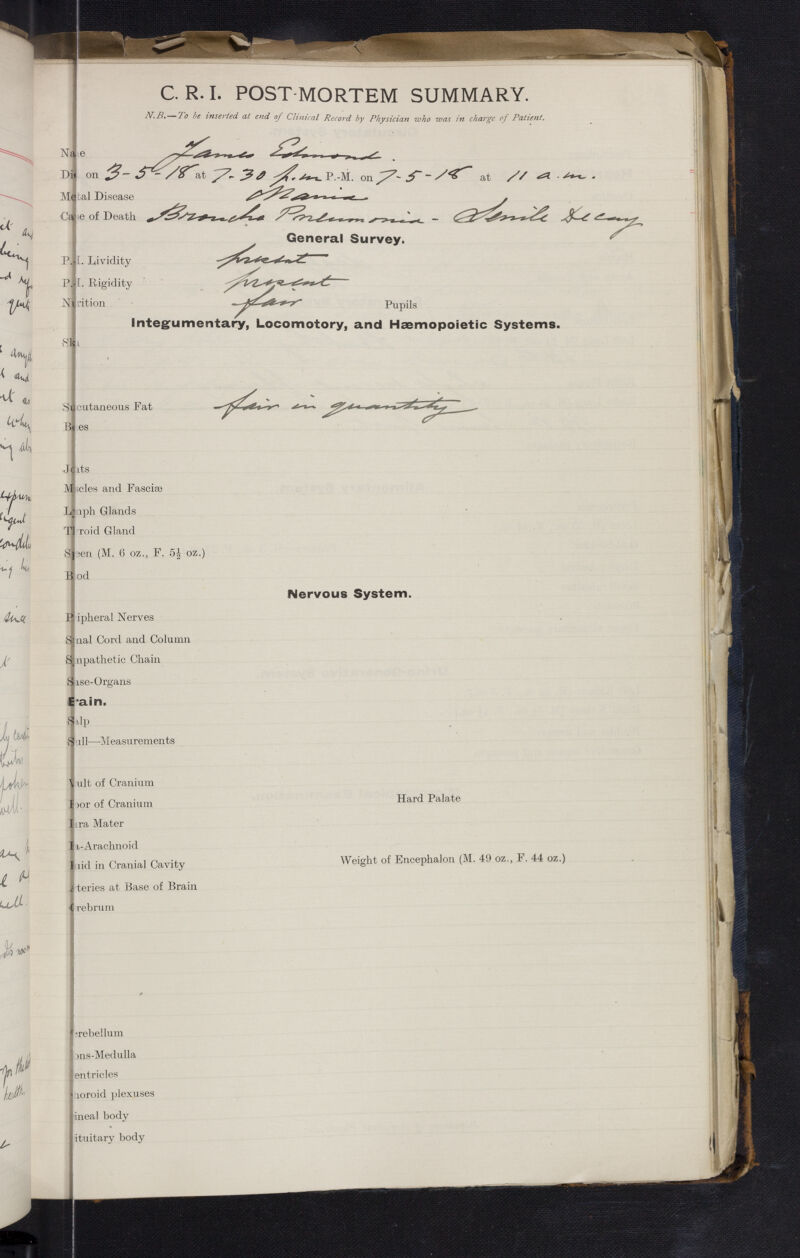 C. R. I. POST-MORTEM SUMMARY.
N.B.—To be inserted at end of Clinical Record by Physician who was in charge of Patient.
Na e James Edmond.
Di on 3-5-18 at 7-30 p.m P.-M. on 7-5-18 at 11 a.m.
M tal Disease Mania
Ca e of Death Broncho Pneumonia - Senile Decay
General Survey.
P. I. Lividity present
P. I. Rigidity present
N rition fair Pupils
Integumentary, Locomotory, and Hæmopoietic Systems.
Sk
S cutaneous Fat fair in quantity
B es
J ts
M cles and Fasciæ
L ph Glands
T roid Gland
S een (M. 6 oz., F. 5½ oz.)
B od
Nervous System.
P ipheral Nerves
S nal Cord and Column
S mpathetic Chain
S se-Organs
B ain.
S lp
S ull—Measurements
V ult of Cranium
F oor of Cranium Hard Palate
D ra Mater
P a-Arachnoid
F uid in Cranial Cavity Weight of Encephalon (M. 49 oz., F. 44 oz.)
A teries at Base of Brain
C rebrum
erebellum
ons-Medulla
entricles
horoid plexuses
ineal body
ituitary body